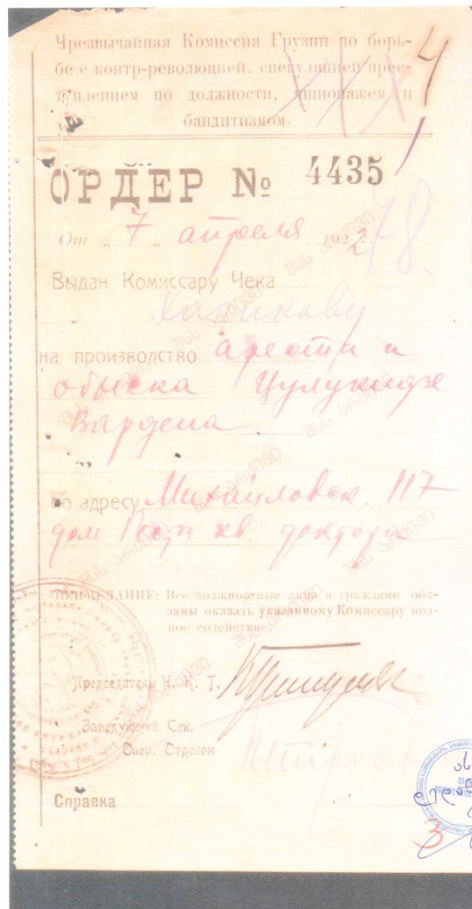 Чрезвычайная Комиссия Грузии по борь-
бе с контр-революцией, спекуляцией прес-
туплением по должности, шпионажем и
бандитизмом.
4
ОРДЕР № 4435
От „ 7 „ апреля 1922
78.
Выдан Комиссару Чека
на производство ареста и
обыска Цулукидзе
Вардена
по адресу Михайловск. 117
дом кв. доктора
ПРИМЕЧАНИЕ: Все должностные лица и граждане обя-
заны оказать указанному Комиссару пол-
ное содействие.
Председатель Ч. К. Г.
Заведующий Сек.
Опер. Отделом
Справка
3